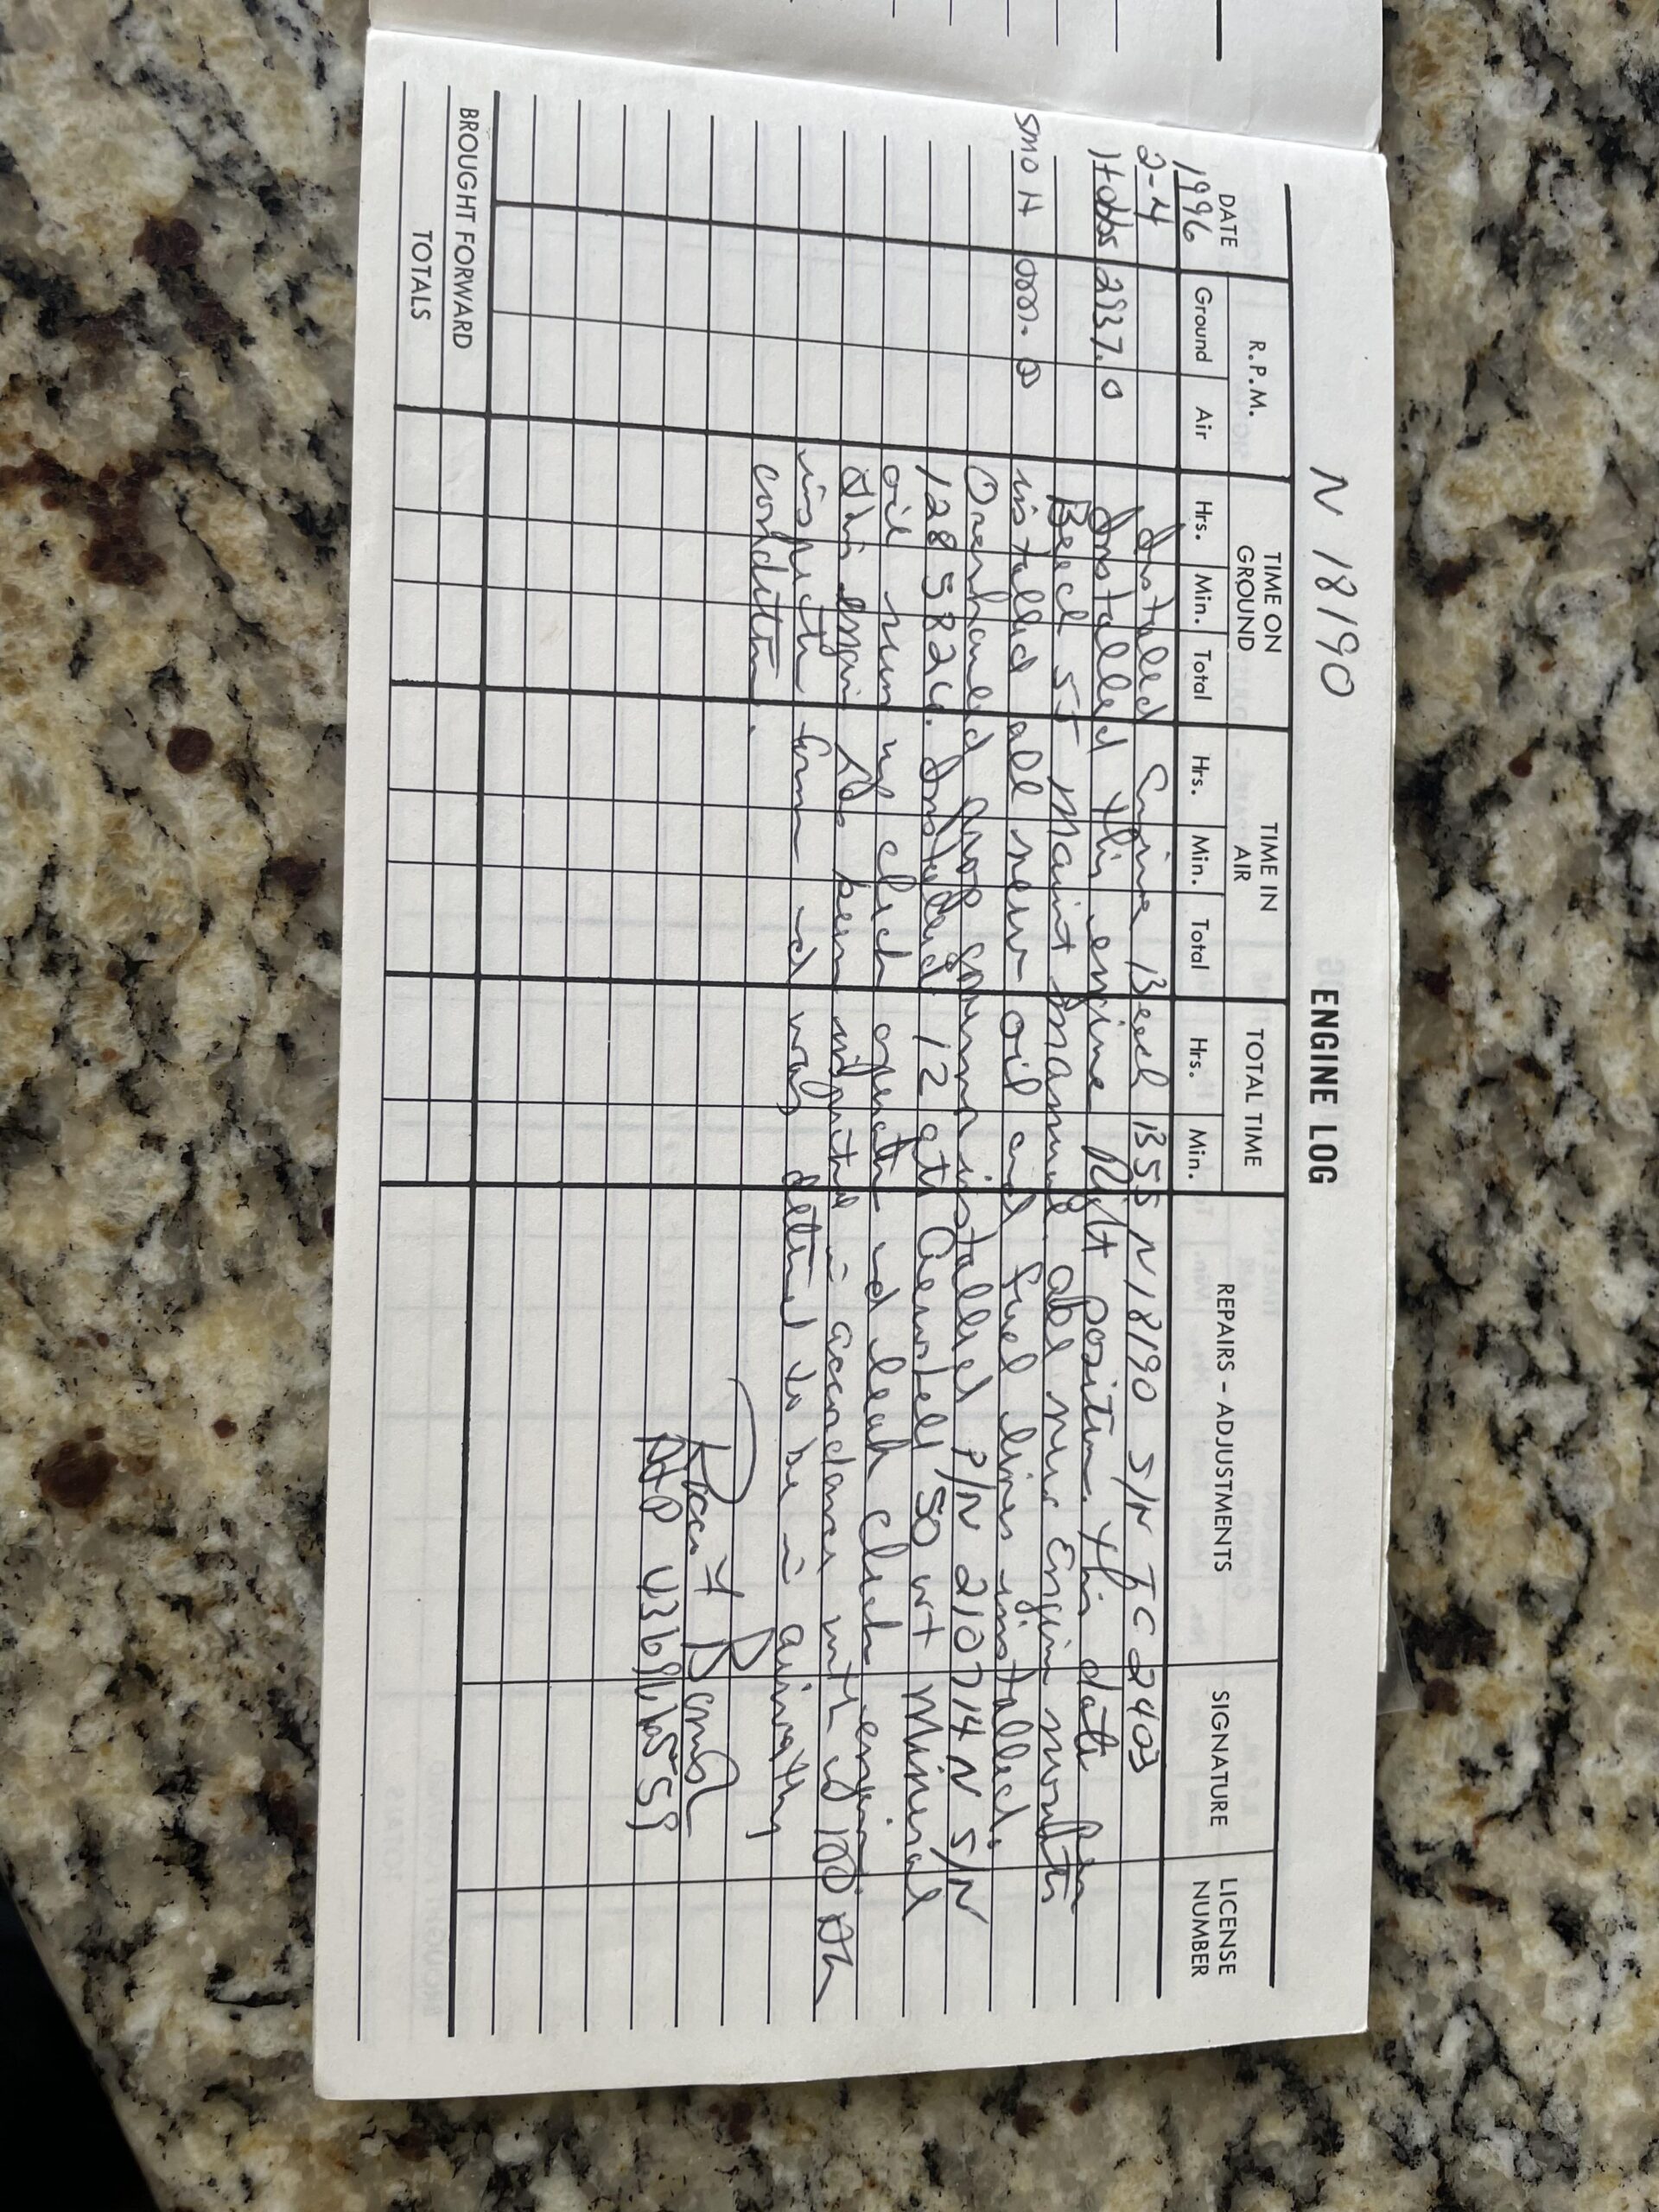 N 18190
ENGINE LOG
DATE R.P.M. TIME ON GROUND TIME IN AIR TOTAL TIME REPAIRS - ADJUSTMENTS SIGNATURE LICENSE NUMBER
Ground Air Hrs. Min. Total Hrs. Min. Total Hrs. Min.
1996
2-4 Installed Beech B55 N18190 S/N TC 2403
Hobbs 2937.0 Installed this engine Right position this date
Beech 55 Maint manual. all new engine mounts
SMOH 000.0 installed all new oil and fuel lines installed.
Overhauled prop governor installed P/N 210714N S/N
Installed 12 qts Aeroshell 50 wt Mineral
oil run up check operation and leak check engine.
this engine has been inspected in accordance with
inspection form and was determined to be in airworthy
condition.
A&P
BROUGHT FORWARD
TOTALS